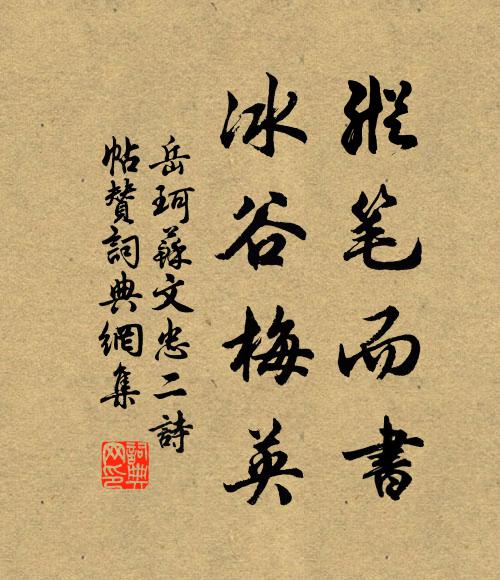 縱笔而書
冰谷梅英
岳珂蘇文忠二詩
帖贊詞典網集
詞典
网印